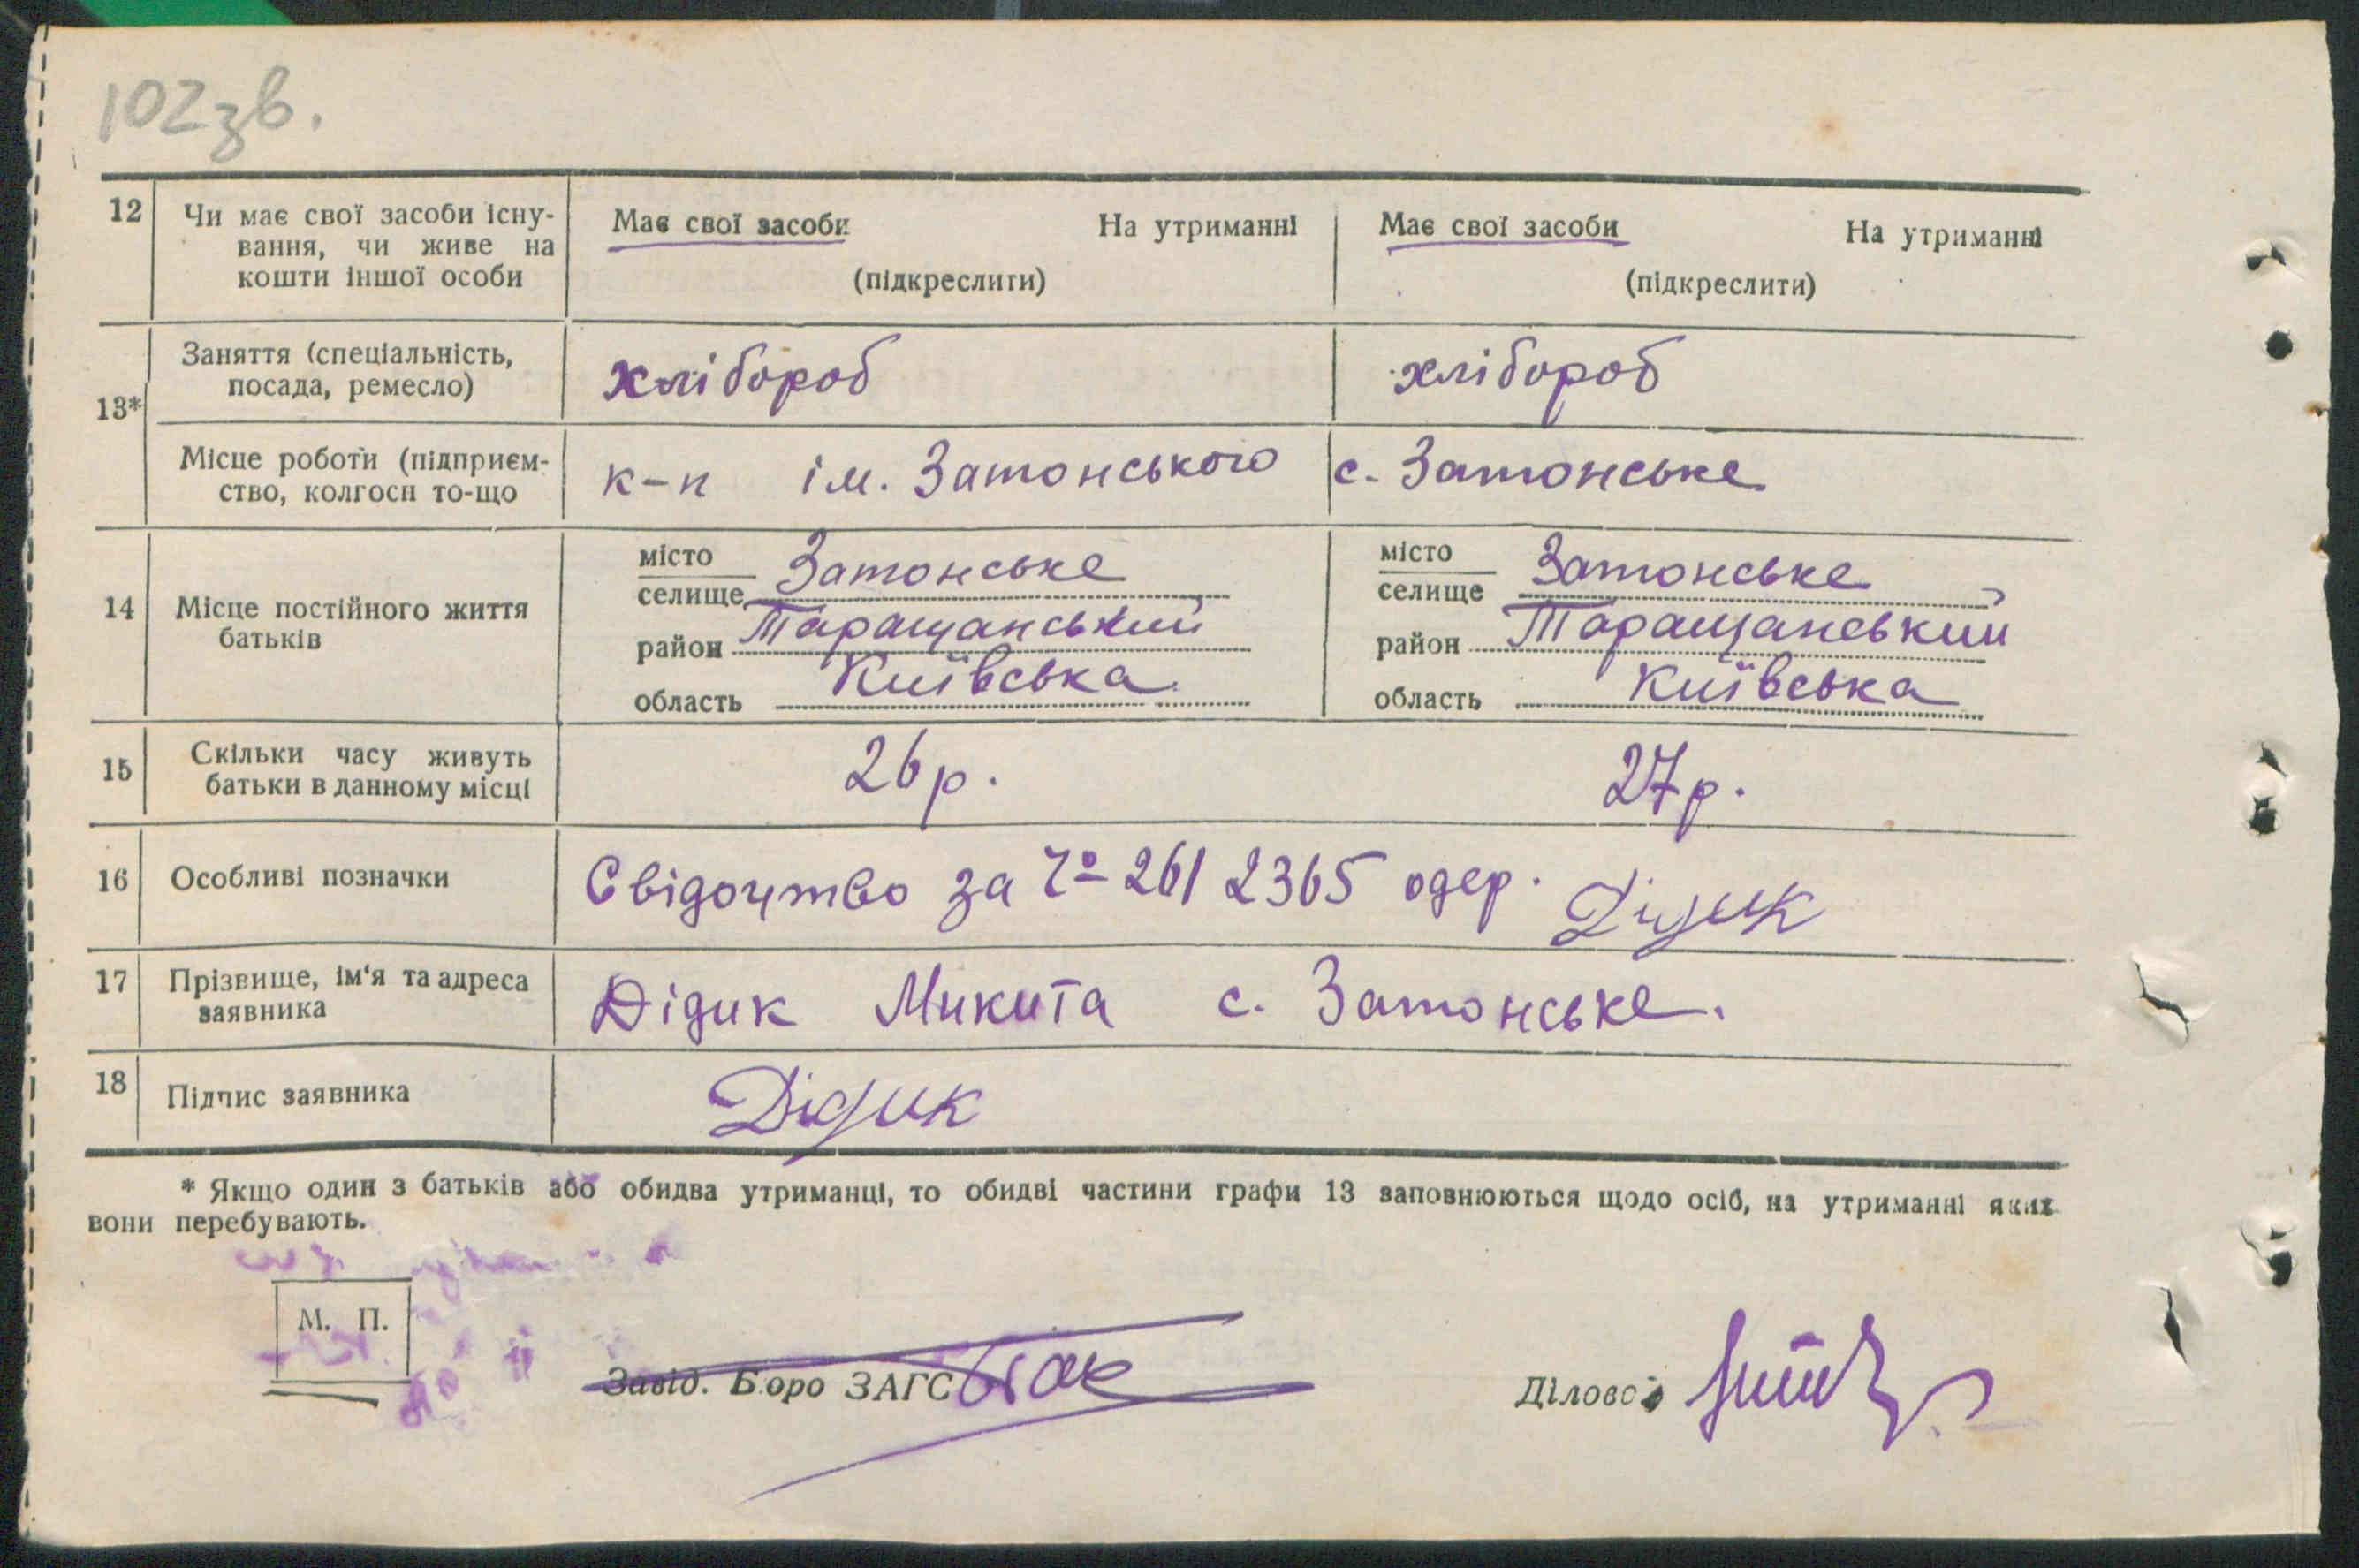 102зв.
12 Чи має свої засоби існу-
вання, чи живе на
кошти іншої особи
Має свої засоби На утриманні
(підкреслити)
Має свої засоби На утриманні
(підкреслити)
13*
Заняття (спеціальність,
посада, ремесло)
хлібороб
хлібороб
Місце роботи (підприєм-
ство, колгосп то-що
к-п ім. Затонського
с. Затонське
14 Місце постійного життя
батьків
місто
селище Затонське
район Таращанський
область Київська
місто
селище Затонське
район Таращанський
область Київська
15 Скільки часу живуть
батьки в данному місці
26 р.
27 р.
16 Особливі позначки
Свідочтво за 2612365 одер. Дідик
17 Прізвище, ім'я та адреса
заявника
Дідик Микита с. Затонське.
18 Підпис заявника
Дідик
* Якщо один з батьків або обидва утриманці, то обидві частини графи 13 заповнюються щодо осіб, на утриманні яких
вони перебувають.
М. П.
Завід. Бюро ЗАГС
Діловод